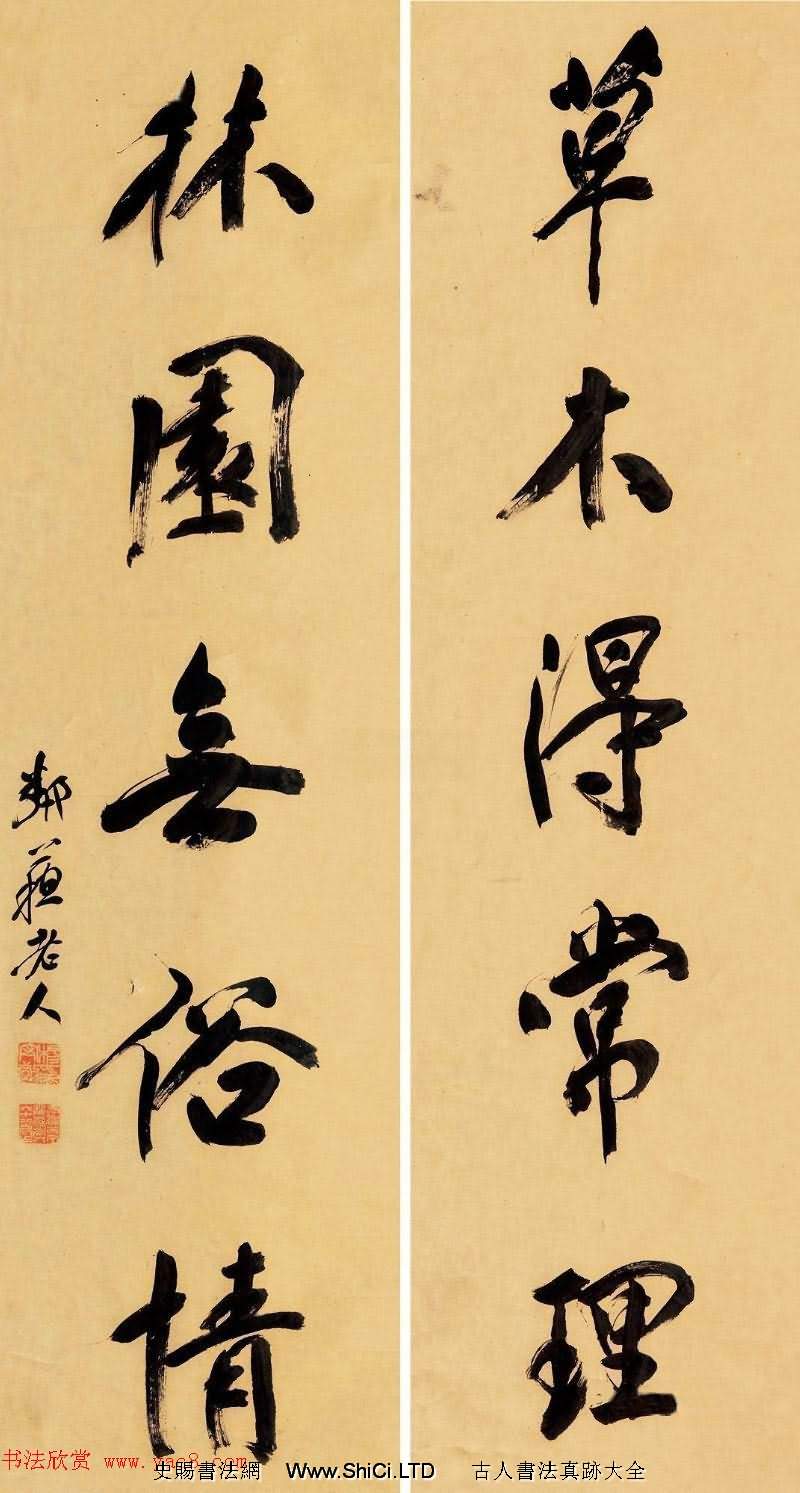 草木得常理
林園無俗情
鄰蘇老人
书法欣赏 www.yac8.com
史賜書法網 Www.ShiCi.LTD 古人書法真跡大全